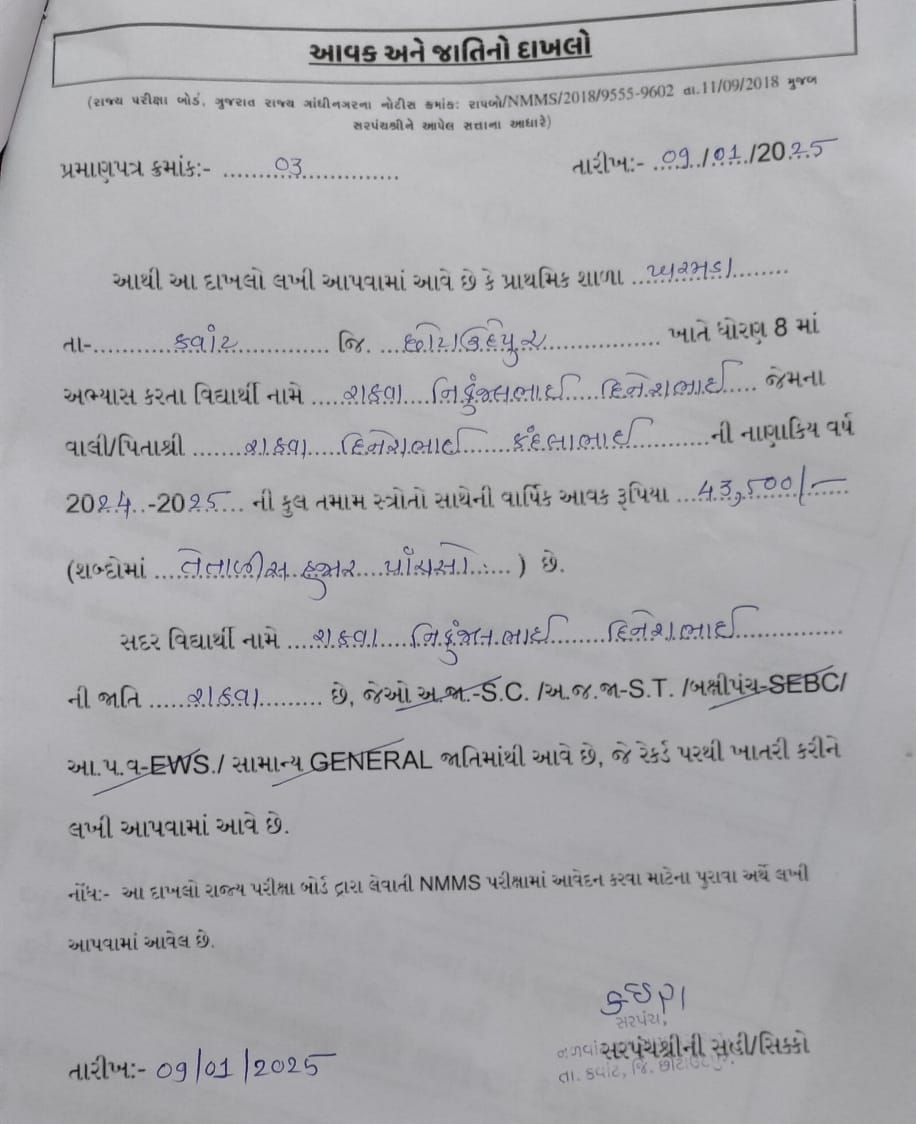 આવક અને જાતિનો દાખલો
(રાજ્ય પરીક્ષા બોર્ડ, ગુજરાત રાજ્ય ગાંધીનગરના નોટીસ ક્રમાંક: રાપબો/NMMS/2018/9555-9602 તા.11/09/2018 મુજબ
સરપંચશ્રીને આપેલ સત્તાના આધારે)
પ્રમાણપત્ર ક્રમાંક:- ....03.... તારીખ:- 09/01/2025
આથી આ દાખલો લખી આપવામાં આવે છે કે પ્રાથમિક શાળા ખરમડા
તા-....કવાંટ.... જિ. છોટાઉદેપુર.... ખાતે ધોરણ 8 માં
અભ્યાસ કરતા વિદ્યાર્થી નામે રાઠવા નિકુંજભાઈ દિનેશભાઈ જેમના
વાલી/પિતાશ્રી રાઠવા દિનેશભાઈ કંદલાભાઈ ની નાણાકિય વર્ષ
2024-2025 ની કુલ તમામ સ્ત્રોતો સાથેની વાર્ષિક આવક રૂપિયા 43,500/-
(શબ્દોમાં તેતાળીસ હજાર પાંચસો) છે.
સદર વિદ્યાર્થી નામે રાઠવા નિકુંજભાઈ દિનેશભાઈ
ની જાતિ રાઠવા છે, જેઓ અ.જા.-S.C. /અ.જ.જા-S.T. /બક્ષીપંચ-SEBC/
આ.પ.વ-EWS./ સામાન્ય GENERAL જાતિમાંથી આવે છે, જે રેકર્ડ પરથી ખાતરી કરીને
લખી આપવામાં આવે છે.
નોંધ:- આ દાખલો રાજ્ય પરીક્ષા બોર્ડ દ્વારા લેવાતી NMMS પરીક્ષામાં આવેદન કરવા માટેના પુરાવા અર્થે લખી
આપવામાં આવેલ છે.
સરપંચ,
સરપંચશ્રીની સહી/સિક્કો
તા. કવાંટ, જિ. છોટાઉદેપુર
તારીખ:- 09/01/2025